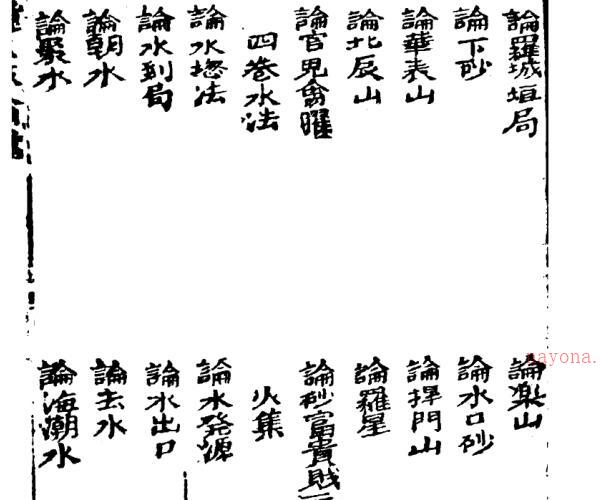 論羅城垣局
論樂山
論下砂
論水口砂
論華表山
論捍門山
論北辰山
論羅星
論官鬼禽曜
論砂富貴賎
四卷水法
火集
論水捴法
論水發源
論水到局
論水出口
論朝水
論去水
論聚水
論海潮水
nayona.